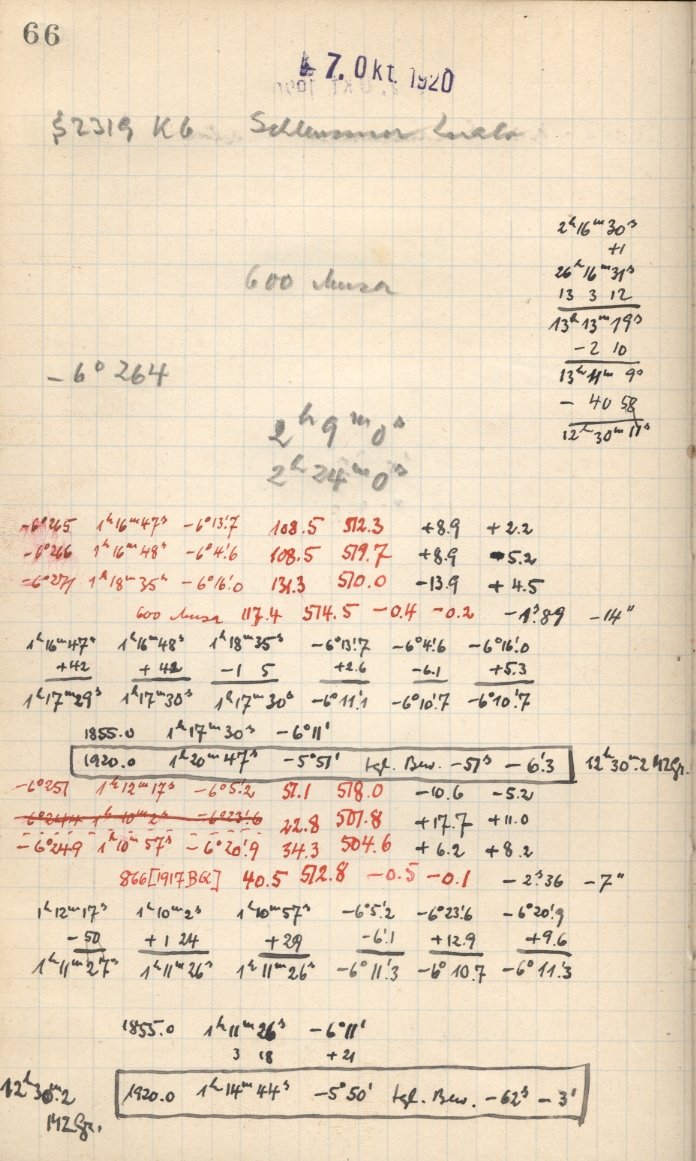 66
7. Okt. 1920
§2319 Kb
2ʰ16ᵐ30ˢ
+1
26ʰ16ᵐ31ˢ
13 3 12
13ʰ13ᵐ19ˢ
-2 10
13ʰ11ᵐ 9ˢ
- 40 58
12ʰ30ᵐ11ˢ
600 Musa
-6° 264
2ʰ 9ᵐ 0ˢ
2ʰ 24ᵐ 0ˢ
-6°265 1ʰ16ᵐ47ˢ -6°13'.7 108.5 512.3 +8.9 +2.2
-6°266 1ʰ16ᵐ48ˢ -6°4'.6 108.5 519.7 +8.9 -5.2
-6°271 1ʰ18ᵐ35ˢ -6°16'.0 131.3 510.0 -13.9 +4.5
600 Musa 117.4 514.5 -0.4 -0.2 -1ˢ.89 -14"
1ʰ16ᵐ47ˢ 1ʰ16ᵐ48ˢ 1ʰ18ᵐ35ˢ -6°13'.7 -6°4'.6 -6°16'.0
+42 +42 -1 5 +2.6 -6.1 +5.3
1ʰ17ᵐ29ˢ 1ʰ17ᵐ30ˢ 1ʰ17ᵐ30ˢ -6°11'.1 -6°10'.7 -6°10'.7
1855.0 1ʰ17ᵐ30ˢ -6°11'
1920.0 1ʰ20ᵐ47ˢ -5°51' tgl. Bew. -51ˢ -6'.3 12ʰ30ᵐ.2 MZGr.
-6°251 1ʰ12ᵐ17ˢ -6°5'.2 51.1 518.0 -10.6 -5.2
-6°244 1ʰ10ᵐ2ˢ -6°23'.6 22.8 501.8 +17.7 +11.0
-6°249 1ʰ10ᵐ57ˢ -6°20'.9 34.3 504.6 +6.2 +8.2
866[1917BQ] 40.5 512.8 -0.5 -0.1 -2ˢ.36 -7"
1ʰ12ᵐ17ˢ 1ʰ10ᵐ2ˢ 1ʰ10ᵐ57ˢ -6°5'.2 -6°23'.6 -6°20'.9
-50 +1 24 +29 -6.1 +12.9 +9.6
1ʰ11ᵐ27ˢ 1ʰ11ᵐ26ˢ 1ʰ11ᵐ26ˢ -6°11'.3 -6°10.7 -6°11'.3
1855.0 1ʰ11ᵐ26ˢ -6°11'
3 18 +21
12ʰ30ᵐ.2 MZGr.
1920.0 1ʰ14ᵐ44ˢ -5°50' tgl. Bew. -62ˢ -3'